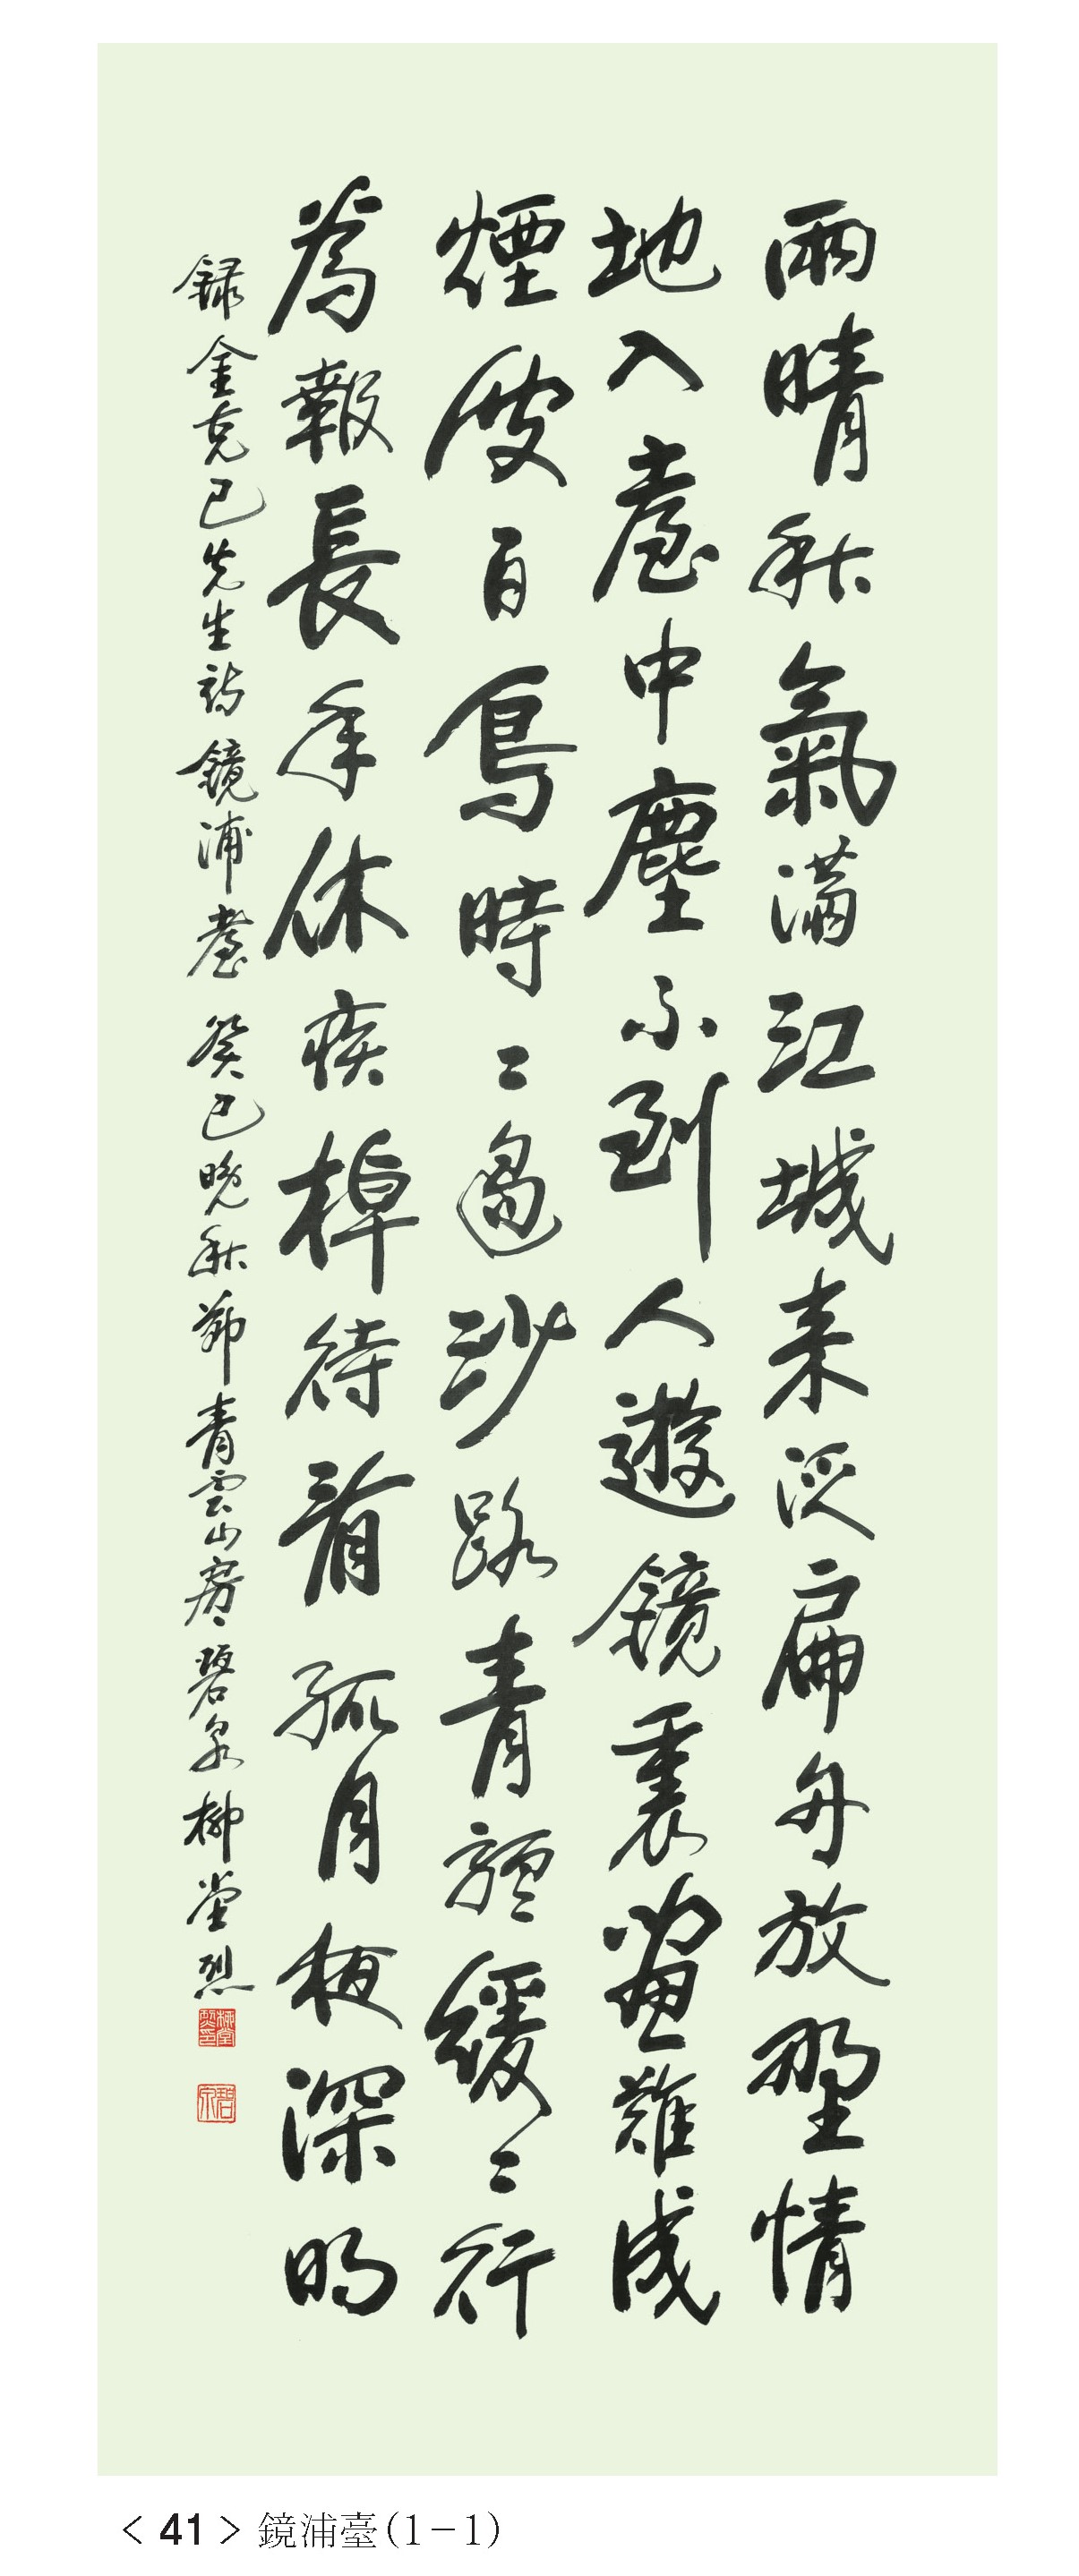 雨晴秋氣滿江城来泛扁舟放野情
地入臺中塵不到人遊鏡裏畫難成
煙波白鳥時〻過沙路青驢緩〻行
爲報長年休疾棹待看孤月夜深明
錄金克己先生詩鏡浦臺 癸巳晩秋節青雲山房碧泉柳堂烈
柳堂烈印
碧泉
< 41 > 鏡浦臺(1-1)